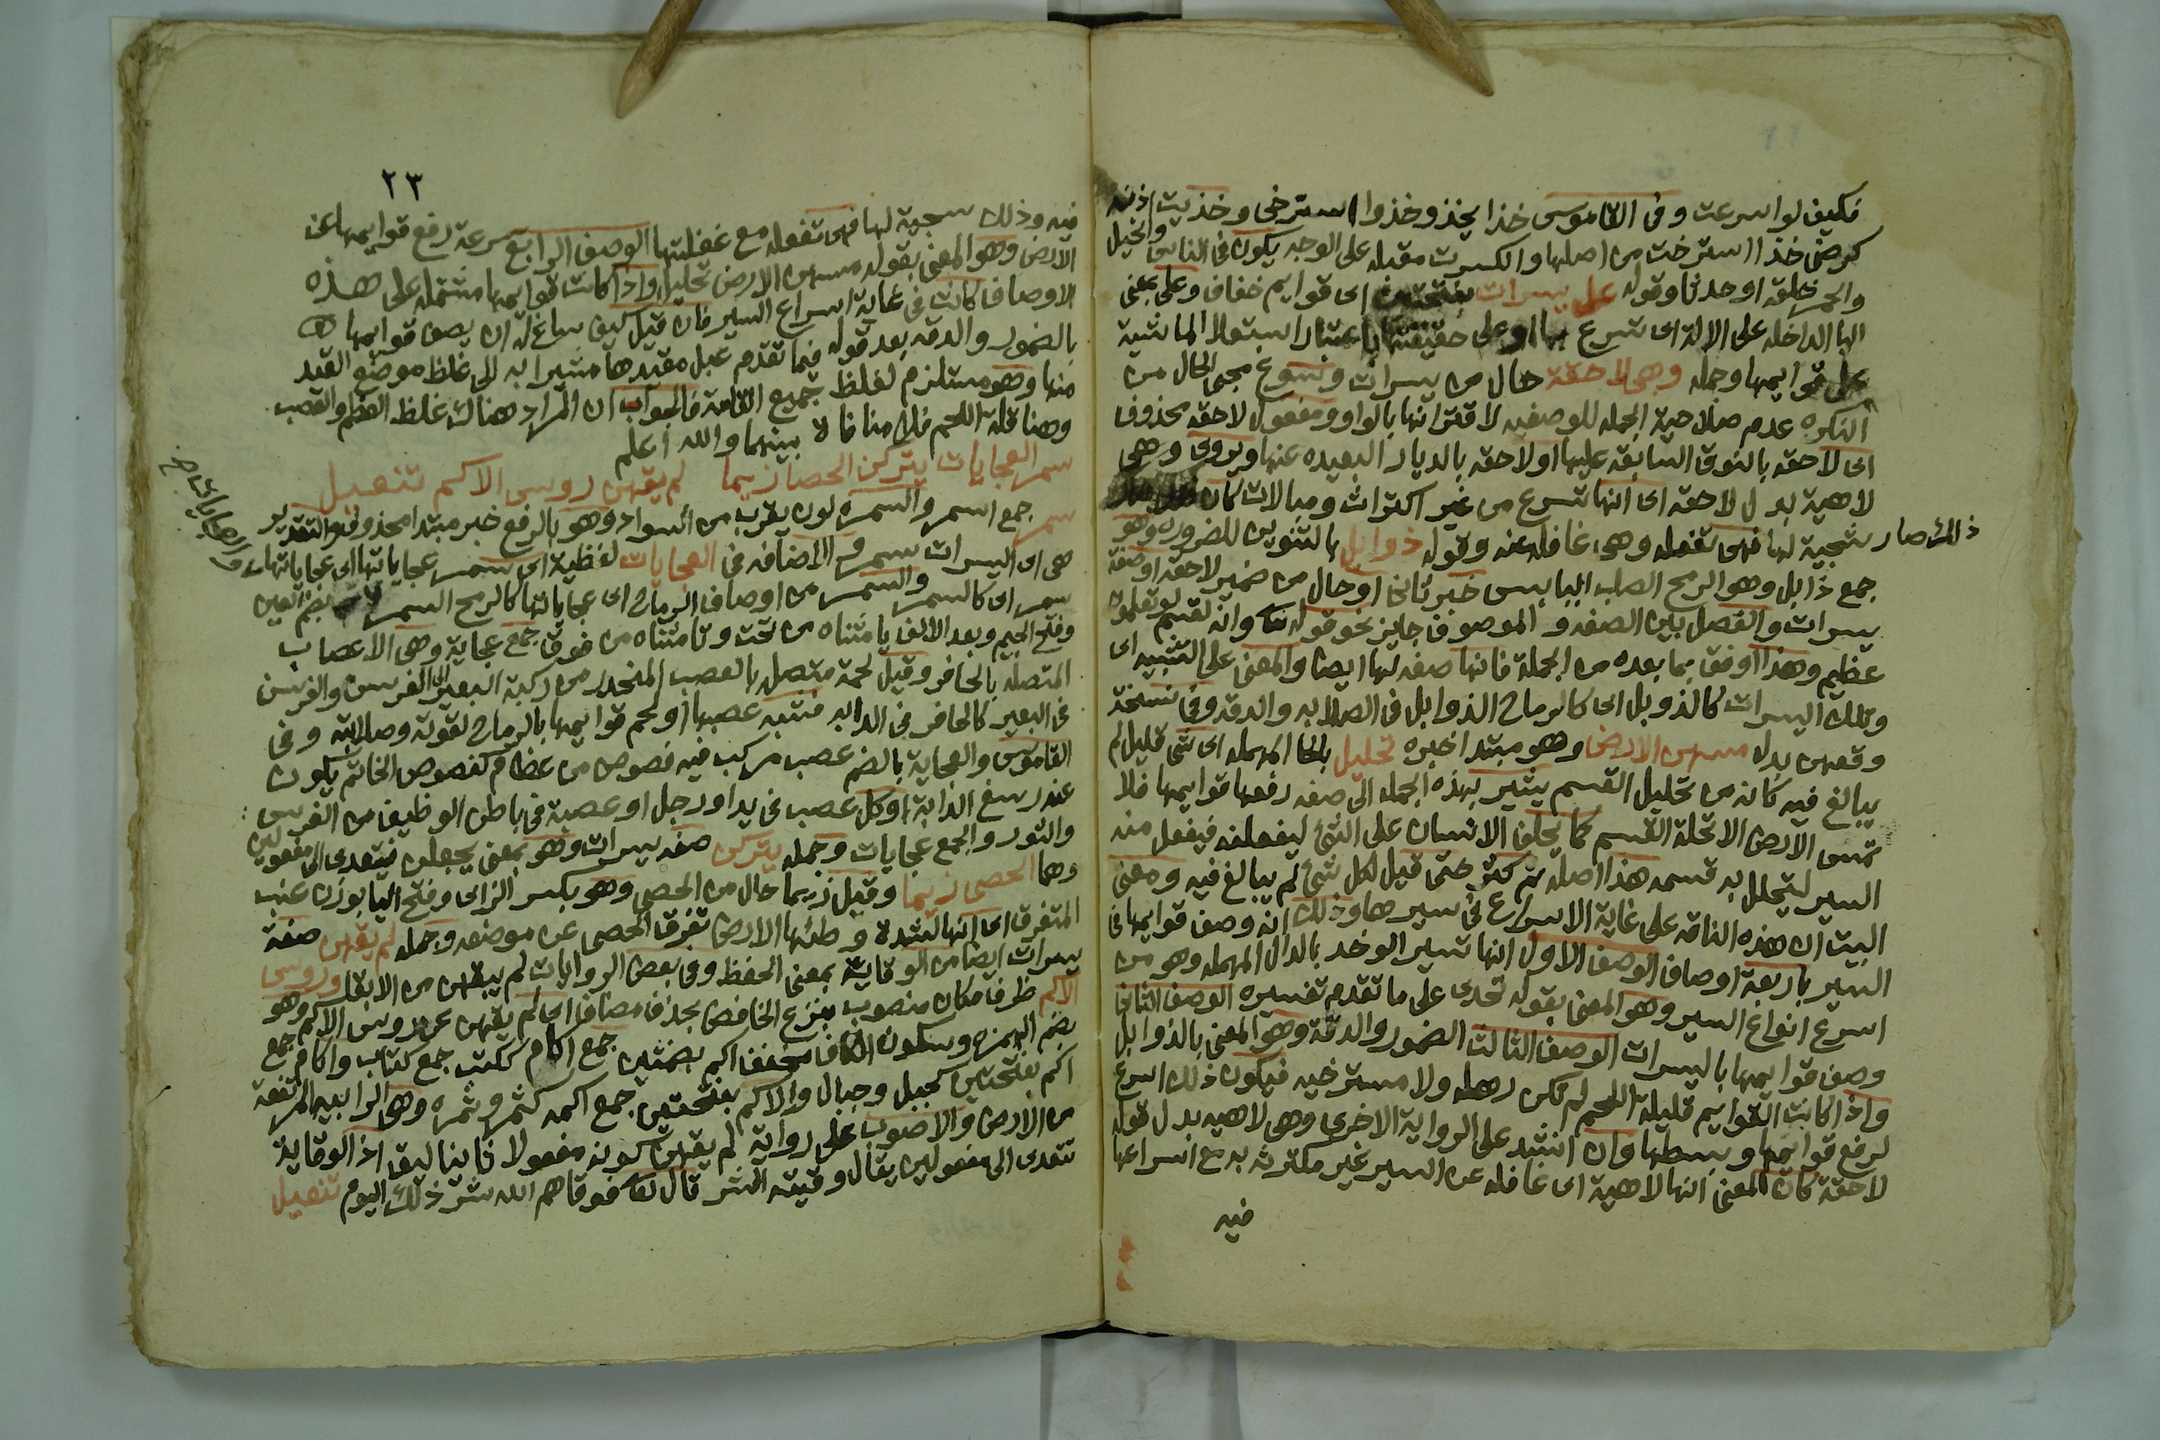 فكيف لو اسرعت وفى القاموس خذا يخذو خذوا استرخى وخذيت اذنه
كرضى خذا استرخت من اصلها وانكسرت مقبله على الوجه يكون فى الناس والخيل
والحمر خلقة او حدثا وقوله على يسرات بفتحتين اى قوايم خفاف وعلى بمعنى
البا الداخله على الالة اى تسرع بها او على حقيقتها باعتبار استعلا الماشية
على قوايمها وجمله وهى لاحقة حال من يسرات وسوغ مجى الحال من
النكره عدم صلاحية الجمله للوصفيه لاقترانها بالواو ومفعول لاحقه محذوف
اى لاحقه بالنوق السابقه عليها او لاحقه بالديار البعيده عنها ويروى وهى
لاهية بدل لاحقه اى انها تسرع من غير اكتراث ومبالات كان
ذلك صار سجية لها فهى تفعله وهى غافله عنه وقوله ذوابل بالتنوين للضرورة وهو
جمع ذابل وهو الرمح الصلب اليابس خبر ثانى او حال من ضمير لاحقه او صفة
يسرات والفصل بين الصفه والموصوف جايز نحو قوله تعا وانه لقسم لو تعلمون
عظيم وهذا اوفق بما بعده من الجملة فانها صفه لها ايضا والمعنى على التشبيه اى
وتلك اليسرات كالذوبل اى كالرماح الذوابل فى الصلابه والدقه وفى نسخة
وقعهن بدل مسهن الارض وهو مبتدا خبره تحليل بالحا المهمله اى شى قليل لم
يبالغ فيه كانه من تحليل القسم يشير بهذه الجمله الى صفه رفعها قوايمها فلا
تمس الارض الا تحلة القسم كما يحلف الانسان على الشئ ليفعلنه فيفعل منه
السير ليتحلل به قسمه هذا اصله ثم كثر حتى قيل لكل شئ لم يبالغ فيه ومعنى
البيت ان هذه الناقه على غاية الاسراع فى سيرها وذلك انه وصف قوايمها فى
السير باربعة اوصاف الوصف الاول انها تسير الوخد بالدال المهمله وهو من
اسرع انواع السير وهو المعنى بقوله تخدى على ما تقدم تفسيره الوصف الثانى
وصف قوايمها باليسرات الوصف الثالث الضمور والدقة وهو المعنى بالذوابل
واذا كانت القوايم قليلة اللحم لم تكن رهله ولا مسترخيه فيكون ذلك اسرع
لرفع قوايمها وبسطها وان انشد على الرواية الاخرى وهى لاهيه بدل قوله
لاحقة كان المعنى انها لاهية اى غافله عن السير غير مكترثه به مع اسراعها
فيه
٢٣
فيه وذلك سجية لها فهى تفعله مع غفلتها الوصف الرابع سرعة رفع قوايمها عن
الارض وهو المعنى بقوله مسهن الارض تحليل واذا كانت قوايمها مشتمله على هذه
الاوصاف كانت فى غاية اسراع السير فان قيل كيف ساغ له ان يصف قوايمها
بالضمور والدقه بعد قوله فيما تقدم عبل مقيدها مشيرا به الى غلظ موضع القيد
منها وهو مستلزم لغلظ جميع القامة فالجواب ان المراد هناك غلظ العظم والقصب
وهنا قلة اللحم فلا منافاة بينهما والله اعلم
سمر العجايات يتركن الحصا زيما لم يقهن روس الاكم تنعيل
سمر جمع اسمر والسمره لون يقرب من السواد وهو بالرفع خبر مبتدا محذوف والتقدير
هى اى اليسرات سمر والاضافه فى العجايات لفظية اى سمر عجاياتها اى عجاياتها
سمر اى كالسمر والسمر من اوصاف الرماح اى عجاياتها كالرمح السمر بضم العين
وفتح الجيم وبعد الالف يا مثناه من تحت وتا مثناه من فوق جمع عجاية وهى الاعصاب
المتصله بالحافر وقيل لحمة متصله بالعصب المنحدر من ركبة البعير الى الفرسن والفرسن
فى البعير كالحافر فى الدابه فشبه عصبها او لحم قوايمها بالرماح لقوته وصلابته وفى
القاموس والعجاية بالضم عصب مركب فيه فصوص من عظام كفصوص الخاتم يكون
عند رسغ الدابة او كل عصب فى يد او رجل او عصبة فى باطن الوظيف من الفرس
والثور والجمع عجايات وجمله يتركن صفه يسرات وهو بمعنى يجعلن فيتعدى الى مفعولين
وهما الحصى زيما وقيل زيما حال من الحصى وهو بكسر الزاى وفتح اليا بوزن عنب
المتفرق اى انها لشدة وطئها الارض تفرق الحصى عن موضعه وجمله لم يقهن صفة
يسرات ايضا من الوقاية بمعنى الحفظ وفى بعض الروايات لم يبقهن من الابقا وروس
الاكم ظرف مكان منصوب بنزع الخافض بحذف مضاف اى لم يقهن عن روس الاكم وهو
بضم الهمزه وسكون الكاف مخفف اكم بضمتين جمع اكام ككتب جمع كتاب واكام جمع
اكم بفتحتين كجبل وجبال والاكم بفتحتين جمع اكمه كثمر وثمره وهى الرابيه المرتفعة
من الارض والاصوب على رواية لم يقهن كونه مفعولا ثانيا ليق اذ الوقاية
تتعدى الى مفعولين يقال وقيته الشر قال تعا فوقاهم الله شر ذلك اليوم تنعيل